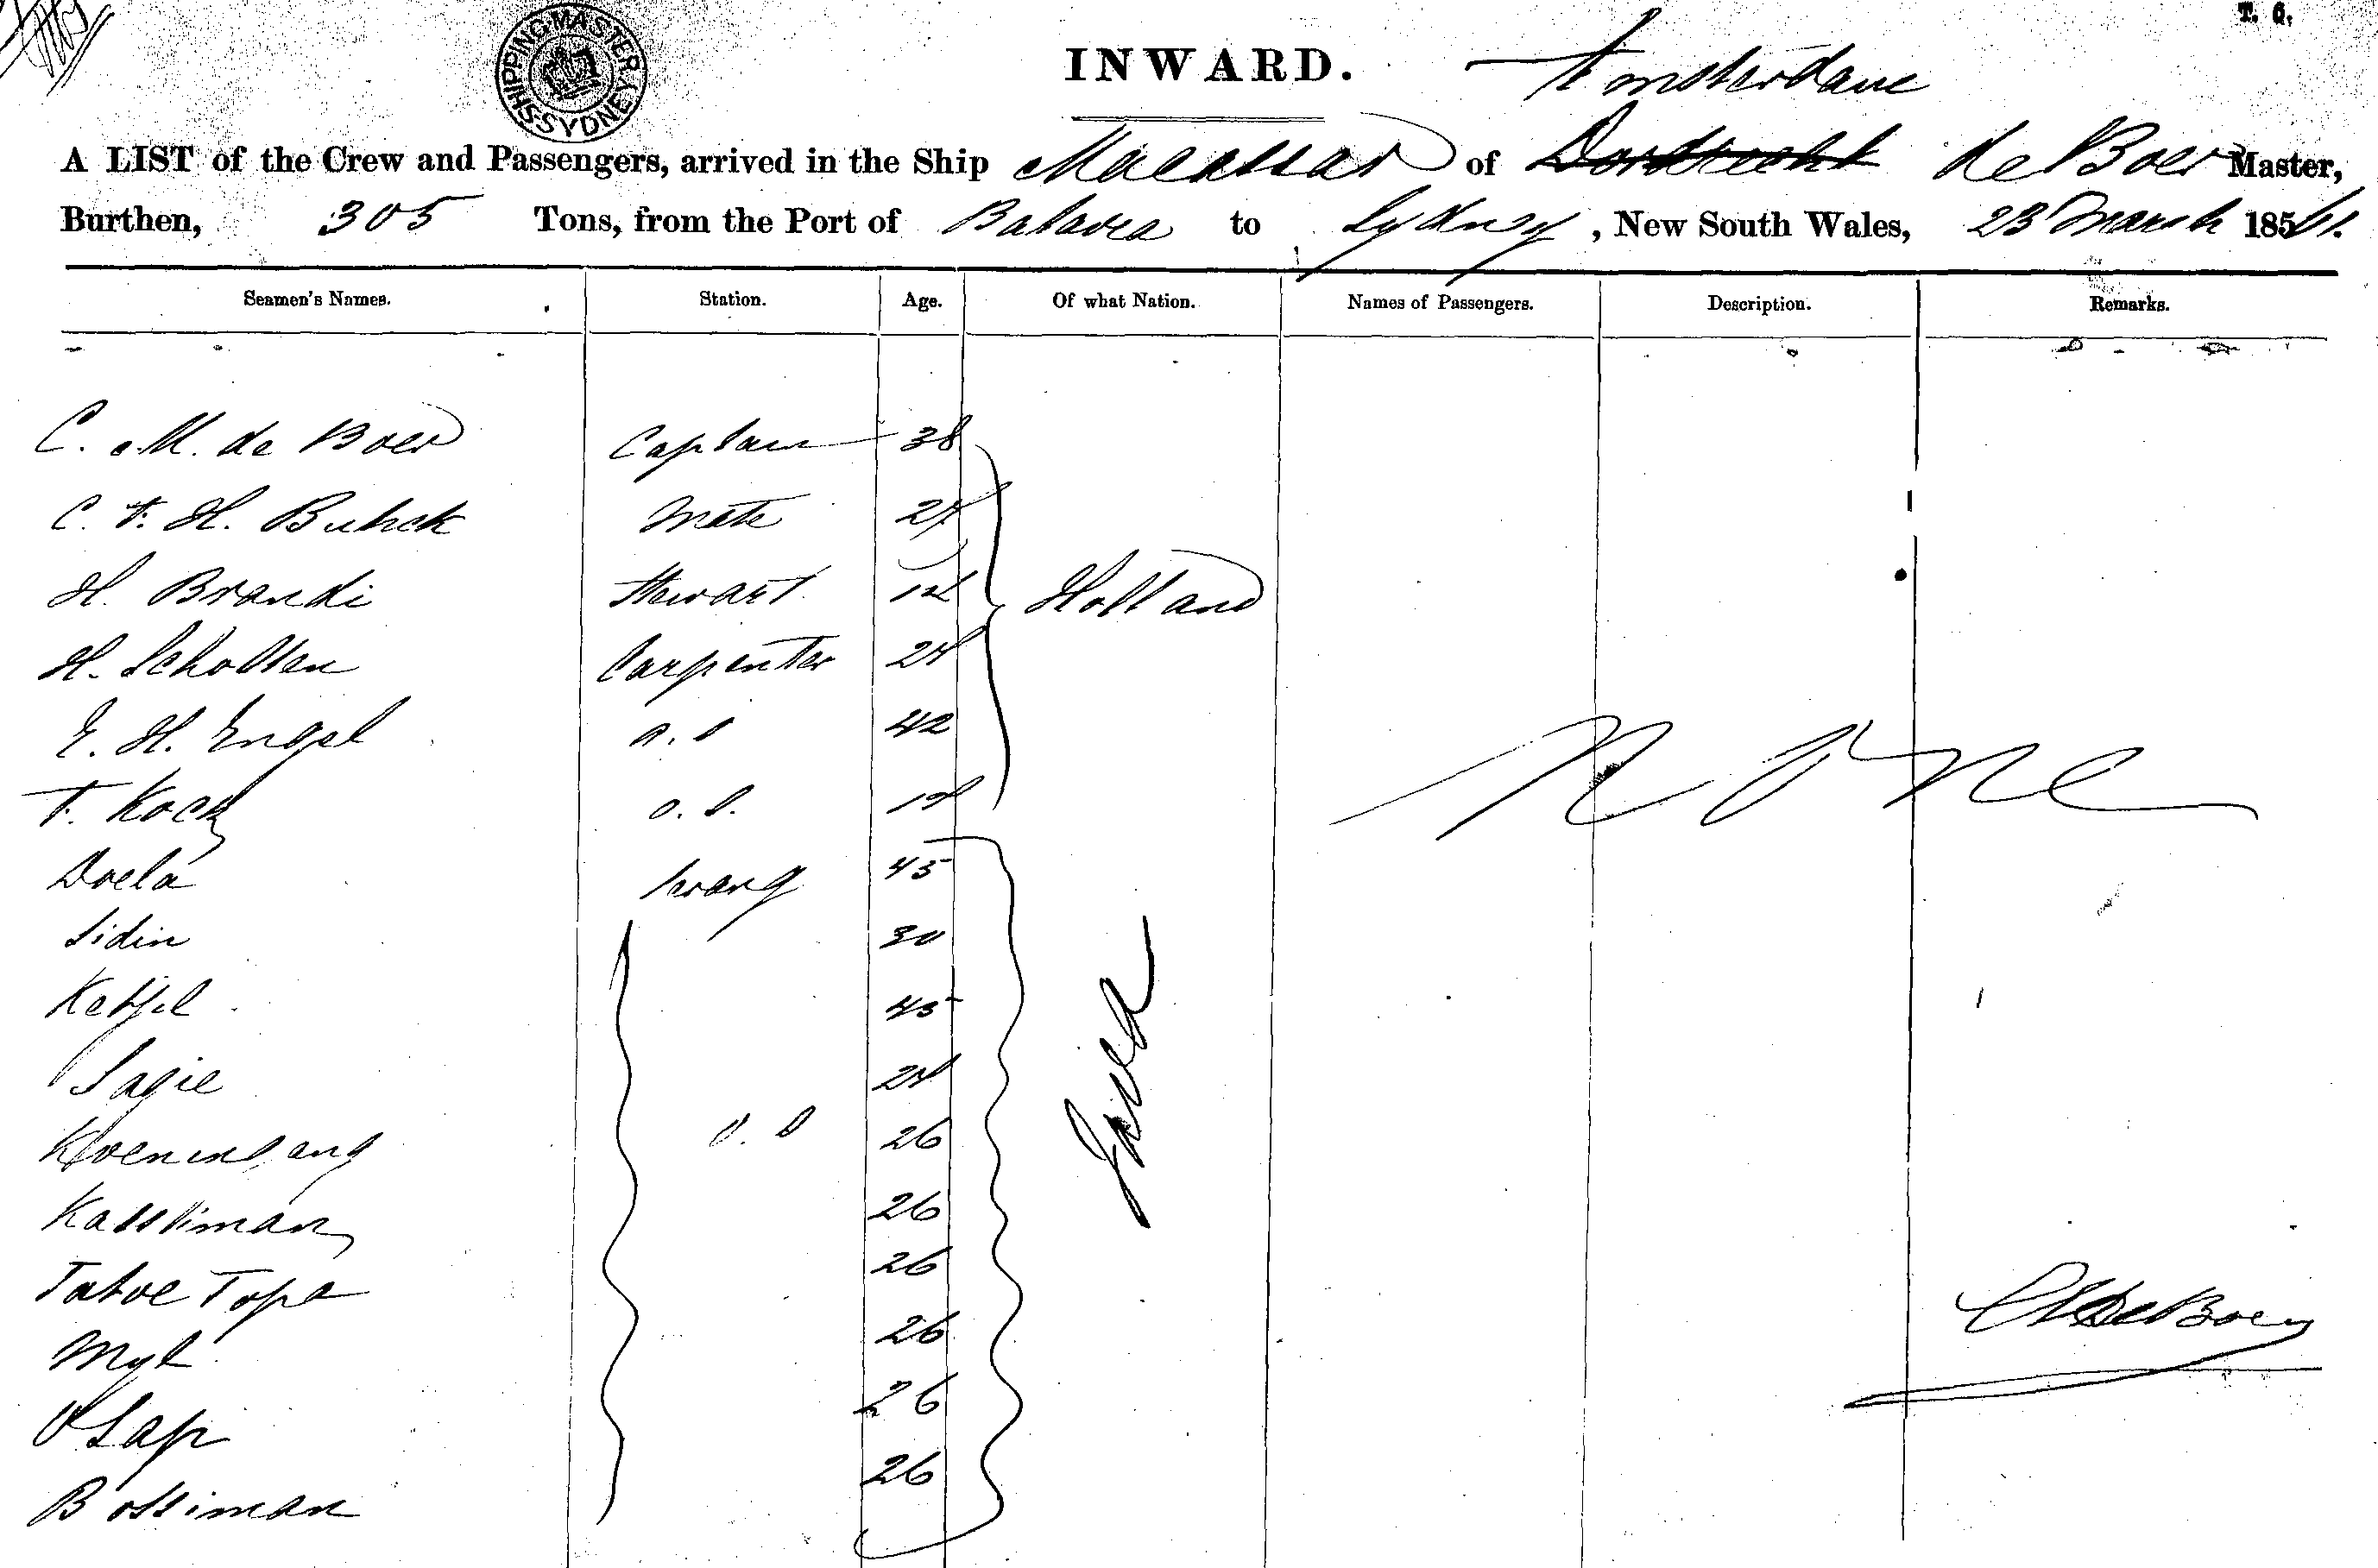 T. Q.
SHIPPING MASTER SYDNEY
INWARD.
Amsterdam
A LIST of the Crew and Passengers, arrived in the Ship Macassar of Dordrecht de Boer Master,
Burthen, 305 Tons, from the Port of Batavia to Sydney, New South Wales, 23 March 1861.
Seamen's Names. Station. Age. Of what Nation. Names of Passengers. Description. Remarks.
C. M. de Boer Captain 38
C. F. H. Buhck Mate
H. Brandi Stewart Holland
H. Scholten Carpenter
E. H. Engel 42
F. Kock o. s.
Doela 45
Sidin 30
45
Sagie
o. s 26
Kassiman 26
Tatoe Topa 26
26
26
Bossiman 26
Java
None
C M de Boer